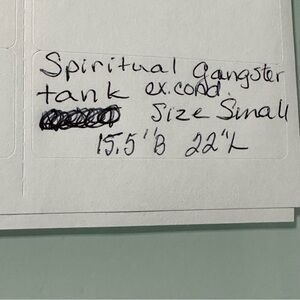 Spiritual Gangster
tank ex.cond.
Size Small
15.5"B 22"L